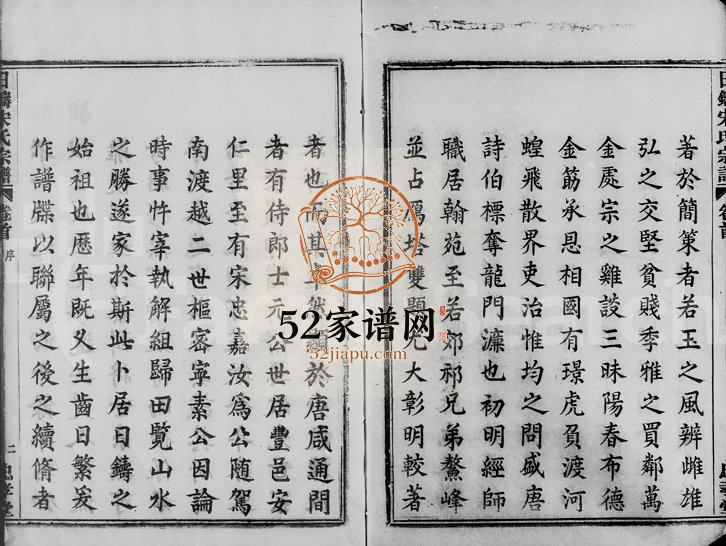 著於簡策者若玉之風辨雌雄
弘之交堅貧賤季雅之買鄰萬
金處宗之雞談三昧陽春布德
金筋承恩相國有璟虎負渡河
蝗飛散界吏治惟均之問盛唐
詩伯標奪龍門濂也初明經師
職居翰苑至若郊祁兄弟鰲峰
並占雁塔雙題尤大彰明較著
者也而其卓然顯於唐咸通間
者有侍郎士元公世居豐邑安
仁里至有宋忠嘉汝為公隨駕
南渡越二世樞密寧素公因論
時事忤宰執解組歸田覽山水
之勝遂家於斯此卜居日鑄之
始祖也歷年既乆生齒日繁爰
作譜牒以聯屬之後之續脩者
日鑄宋氏宗譜
卷首
序
二
忠孝堂
52家谱网
52jiapu.com